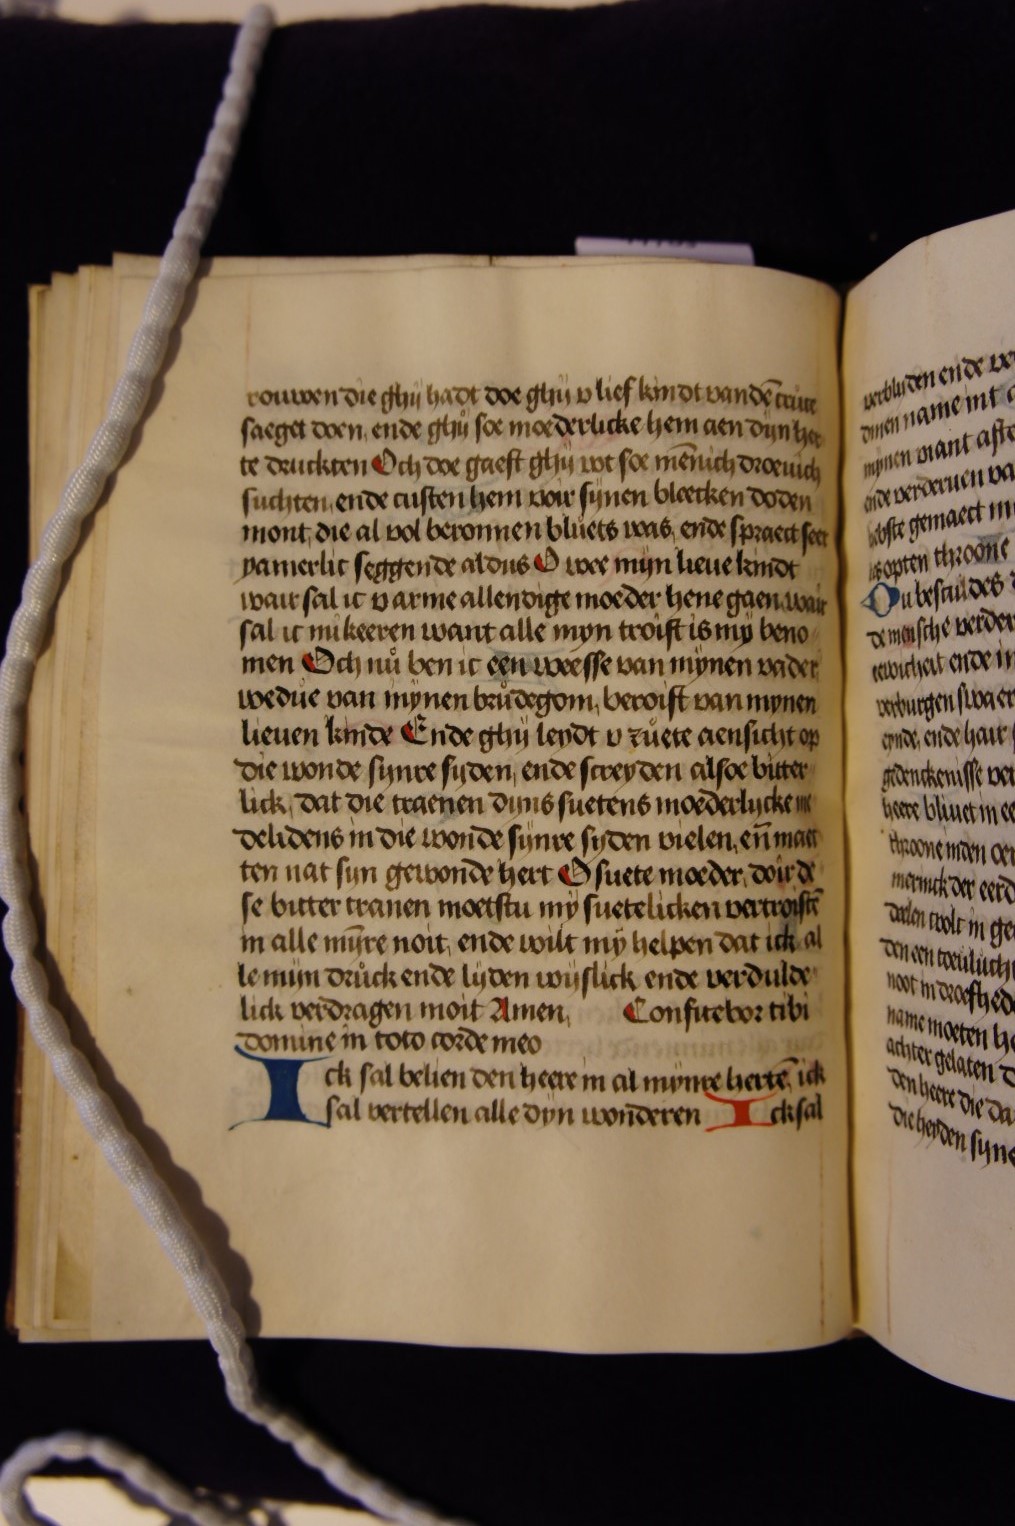 rouwen die ghij hadt doe ghij v lief kindt vandē cruce
saeget doen, ende ghij soe moederlicke hem aen dijn her
te druckten Och doe gaeft ghij wt soe mēnich droevich
suchten, ende custen hem voir sijnen bleecken doden
mont, die al vol beronnen bluets was, ende spraect seer
yamerlic seggende aldus O wee mijn lieue kindt
wair sal ic v arme allendige moeder hene gaen, wair
sal ic mi keeren want alle myn troist is my beno
men Och nů ben ic een weesse van mijnen vader
wedůe van mijnen brůdegom, beroist van mynen
lieuen kinde Ende ghij leydt v zůete aensicht op
die wonde sijnre syden, ende screyden alsoe bitter
lick, dat die traenen dijns suetens moederlycke me
delidens in die wonde sijnre syden vielen, eñ maec
ten nat syn gewonde hert O suete moeder, doir de
se bitter tranen moetstu my suetelicken vertroistē
in alle mijnre noit, ende wilt mij helpen dat ick al
le mijn drůck ende lijden wijslick ende verdulde
lick verdragen moit Amen, Confitebor tibi
domine in toto corde meo
Ick sal belien den heere in al mynre hertē, ick
sal vertellen alle dyn wonderen Ick sal
verbliiden ende
dinen name
mynen viant
ende verderuen
gemaect
opten throone
Du bescul des
de mensche verder
ende in
verburgen swaer
eynde, ende hair
gedenckenisse
heere bliuet in
throone inden
der eerd
in
den een
noot in droefhede
name moeten
achter gelaten
den heere die
die heyden